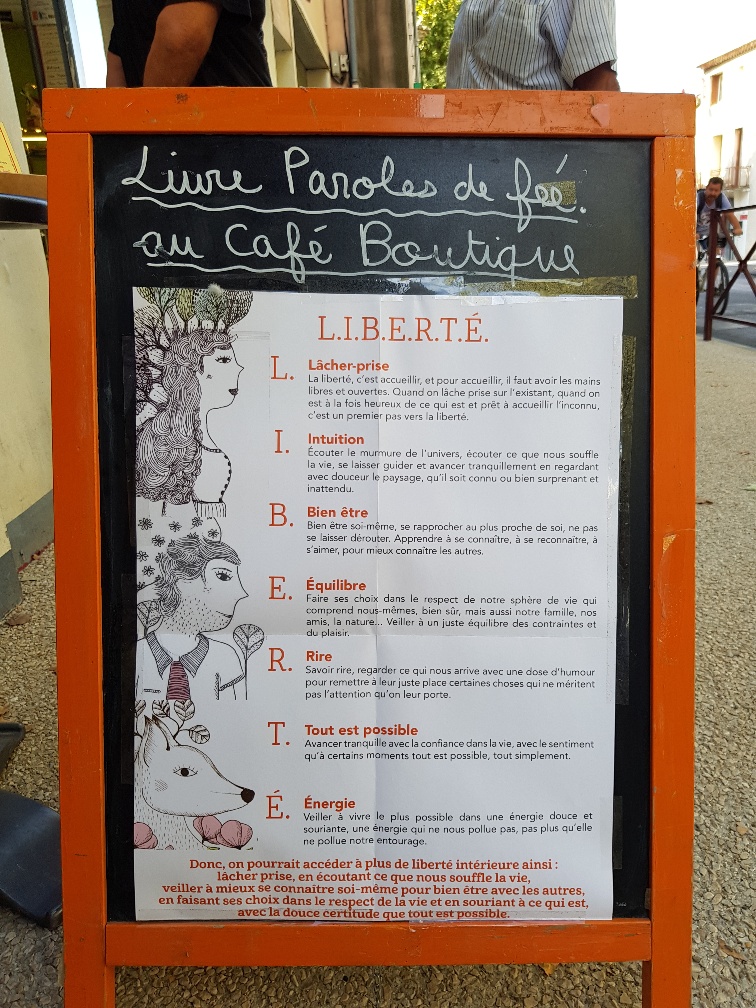 Livre Paroles de fée.
au Café Boutique
L.I.B.E.R.T.É.
L. Lâcher-prise
La liberté, c'est accueillir, et pour accueillir, il faut avoir les mains
libres et ouvertes. Quand on lâche prise sur l'existant, quand on
est à la fois heureux de ce qui est et prêt à accueillir l'inconnu,
c'est un premier pas vers la liberté.
I. Intuition
Écouter le murmure de l'univers, écouter ce que nous souffle
la vie, se laisser guider et avancer tranquillement en regardant
avec douceur le paysage, qu'il soit connu ou bien surprenant et
inattendu.
B. Bien être
Bien être soi-même, se rapprocher au plus proche de soi, ne pas
se laisser dérouter. Apprendre à se connaître, à se reconnaître, à
s'aimer, pour mieux connaître les autres.
E. Équilibre
Faire ses choix dans le respect de notre sphère de vie qui
comprend nous-mêmes, bien sûr, mais aussi notre famille, nos
amis, la nature... Veiller à un juste équilibre des contraintes et
du plaisir.
R. Rire
Savoir rire, regarder ce qui nous arrive avec une dose d'humour
pour remettre à leur juste place certaines choses qui ne méritent
pas l'attention qu'on leur porte.
T. Tout est possible
Avancer tranquille avec la confiance dans la vie, avec le sentiment
qu'à certains moments tout est possible, tout simplement.
É. Énergie
Veiller à vivre le plus possible dans une énergie douce et
souriante, une énergie qui ne nous pollue pas, pas plus qu'elle
ne pollue notre entourage.
Donc, on pourrait accéder à plus de liberté intérieure ainsi :
lâcher prise, en écoutant ce que nous souffle la vie,
veiller à mieux se connaître soi-même pour bien être avec les autres,
en faisant ses choix dans le respect de la vie et en souriant à ce qui est,
avec la douce certitude que tout est possible.